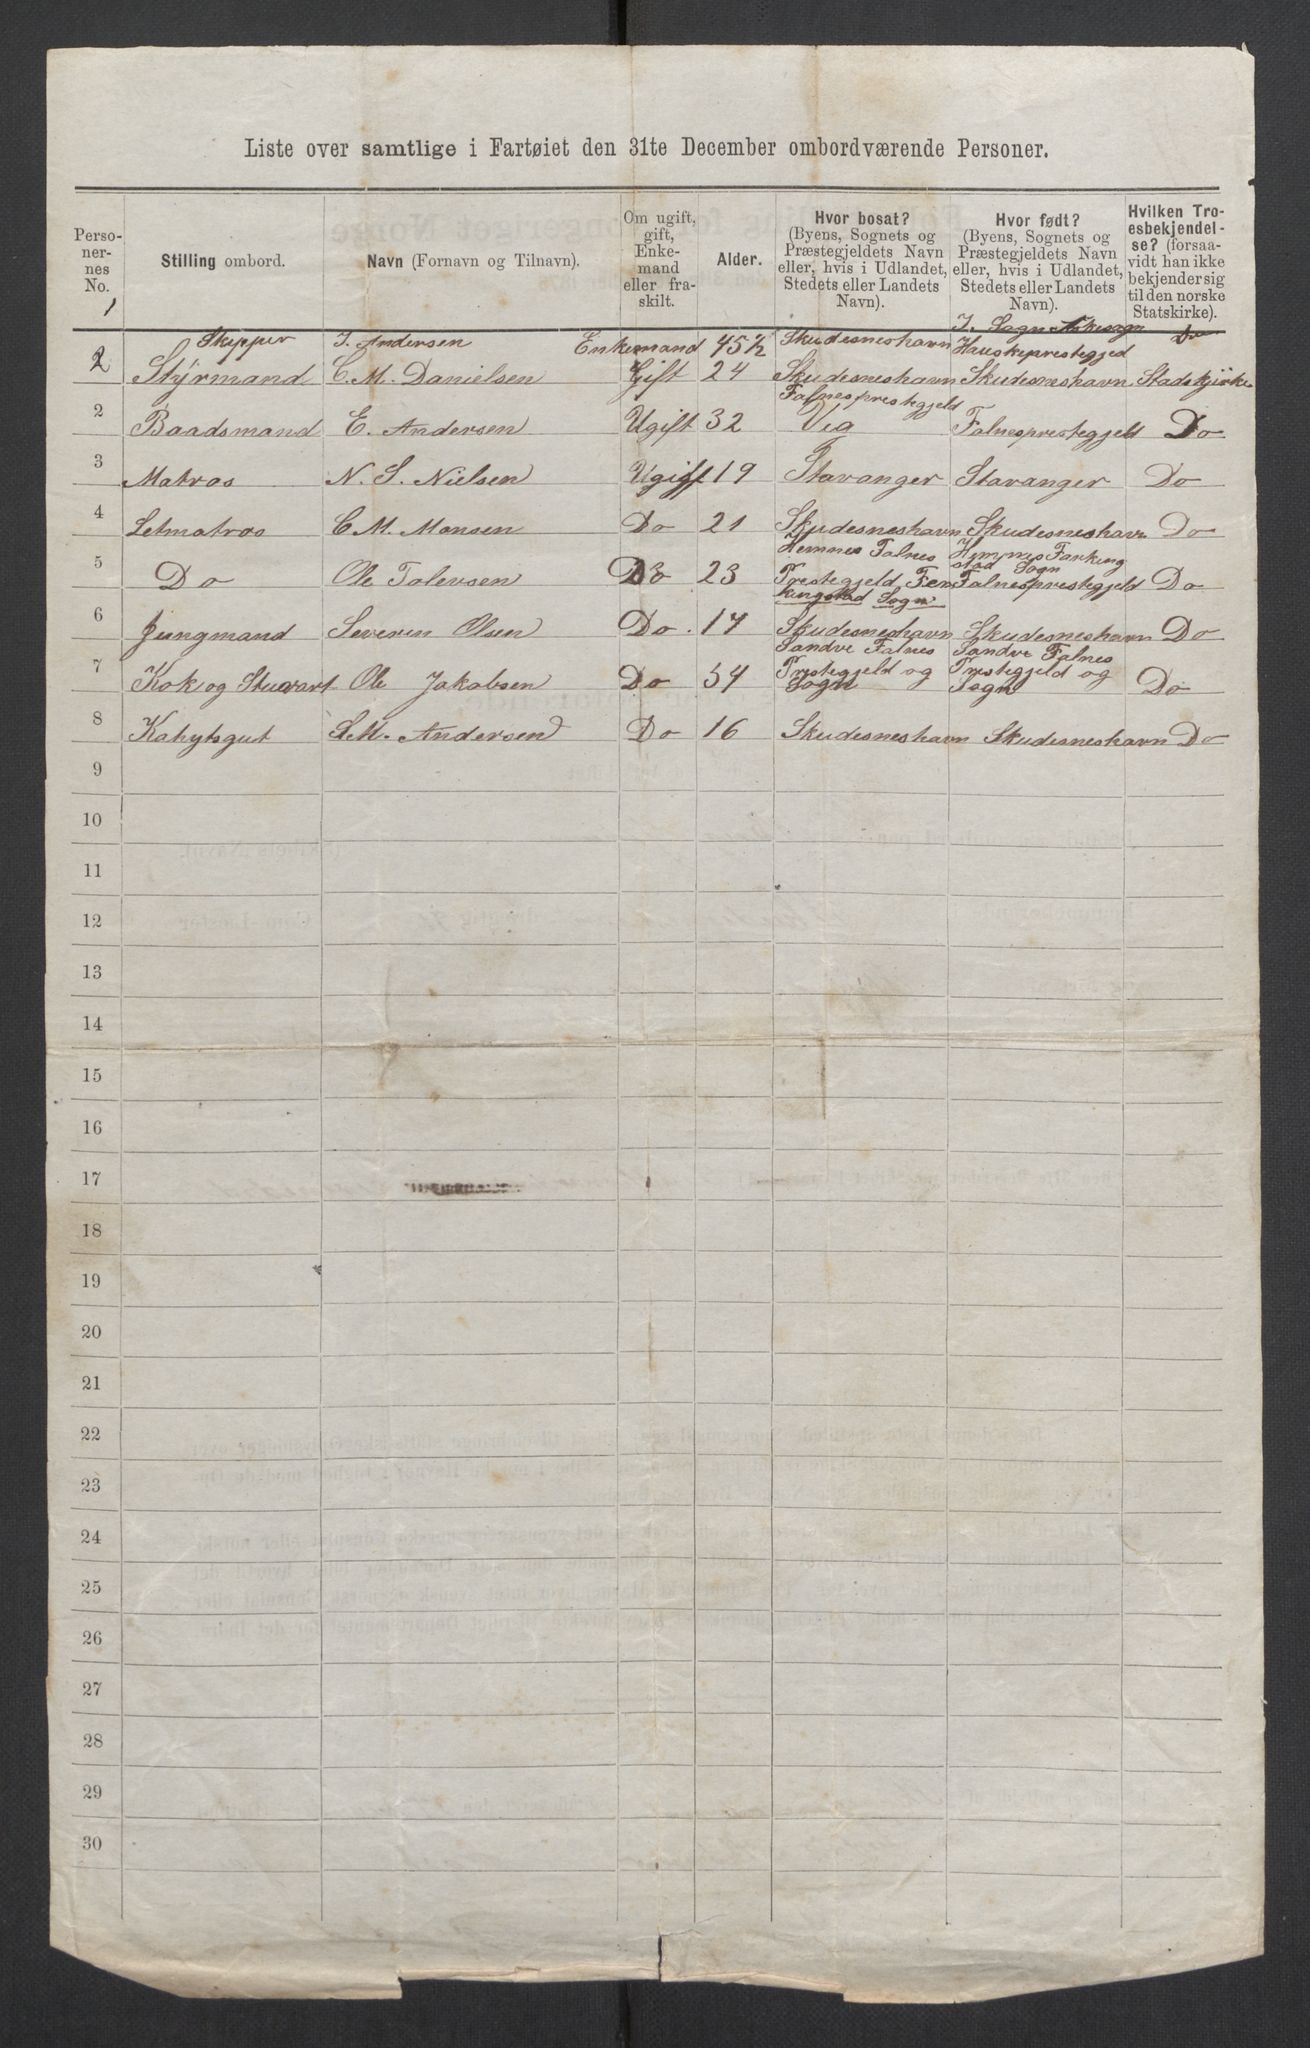 Liste over samtlige i Fartøiet den 31te December ombordværende Personer.
Perso-
ner-
nes
No.
Stilling ombord.
Navn (Fornavn og Tilnavn).
Om ugift,
gift,
Enke-
mand
eller fra-
skilt.
Alder.
Hvor bosat?
(Byens, Sognets og
Præstegjeldets Navn
eller, hvis i Udlandet,
Stedets eller Landets
Navn).
Hvor født?
(Byens, Sognets og
Præstegjeldets Navn
eller, hvis i Udlandet,
Stedets eller Landets
Navn).
Hvilken Tro-
esbekjendel-
se? (forsaa-
vidt han ikke
bekjender sig
til den norske
Statskirke).
1 Skipper I. Andersen Enkemand 45½ Skudesneshavn I. Sogn Do
2 Styrmand C. M. Danielsen Gift 24 Skudesneshavn Skudesneshavn Stadskjirke
Falnesprestegjeld
2 Baadsmand E. Andersen Ugift 32 Vig Falnesprestegjeld Do
3 Matros N. S. Nielsen Ugift 19 Stavanger Stavanger Do
4 Letmatros C. M. Monsen Do 21 Skudesneshavn Skudesneshavn Do
Hemnes Falnes Hemnes Farking
stad Sogn
5 Do Ole Tolevsen Do 23 Prestegjeld Fer Falnesprestegjeld Do
kingstad Sogn
6 Jungmand Severin Olsen Do. 17 Skudesneshavn Skudesneshavn Do
Sandve Falnes Sandve Falnes
7 Kok og Stuvart Ole Jakobsen Do 54 Prestegjeld og Prestegjeld og Do
Sogn Sogn
8 Kahytsgut S.M. Andersen Do 16 Skudesneshavn Skudesneshavn Do
9
10
11
12
13
14
15
16
17
18
19
20
21
22
23
24
25
26
27
28
29
30